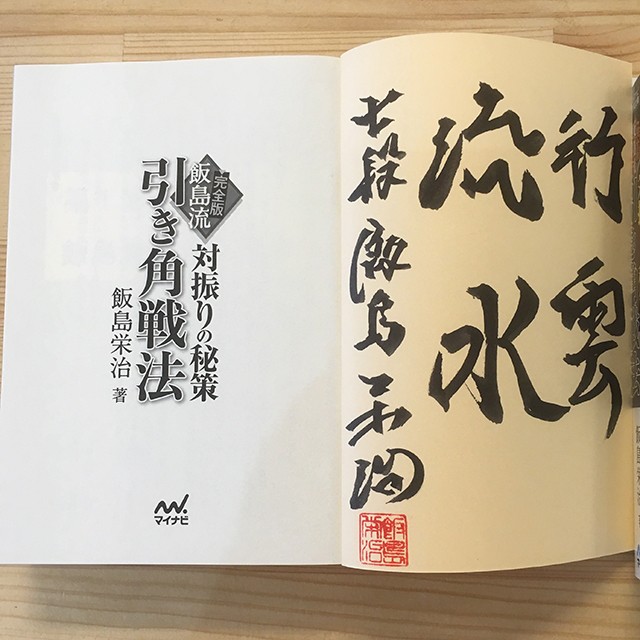 行雲
流水
七段 飯島栄治
飯島
栄治
完全版
対振りの秘策
飯島流
引き角戦法
飯島栄治 著
マイナビ